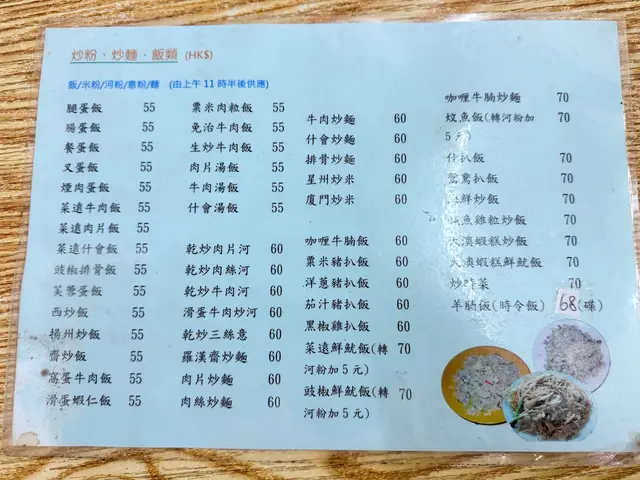 炒粉、炒麵、飯類 (HK$)
飯/米粉/河粉/意粉/麵 (由上午 11 時半後供應)
腿蛋飯 55
腸蛋飯 55
餐蛋飯 55
叉蛋飯 55
煙肉蛋飯 55
菜遠牛肉飯 55
菜遠肉片飯 55
菜遠什會飯 55
豉椒排骨飯 55
芙蓉蛋飯 55
西炒飯 55
揚州炒飯 55
齋炒飯 55
窩蛋牛肉飯 55
滑蛋蝦仁飯 55
粟米肉粒飯 55
免治牛肉飯 55
生炒牛肉飯 55
肉片湯飯 55
牛肉湯飯 55
什會湯飯 55
乾炒肉片河 60
乾炒肉絲河 60
乾炒牛肉河 60
滑蛋牛肉炒河 60
乾炒三絲意 60
羅漢齋炒麵 60
肉片炒麵 60
肉絲炒麵 60
牛肉炒麵 60
什會炒麵 60
排骨炒麵 60
星州炒米 60
廈門炒米 60
咖喱牛腩飯 60
粟米豬扒飯 60
洋蔥豬扒飯 60
茄汁豬扒飯 60
黑椒雞扒飯 60
菜遠鮮魷飯(轉 70
河粉加 5 元)
豉椒鮮魷飯(轉 70
河粉加 5 元)
咖喱牛腩炒麵 70
炆魚飯(轉河粉加 70
5 元)
什扒飯 70
鴛鴦扒飯 70
海鮮炒飯 70
鹹魚雞粒炒飯 70
大澳蝦糕炒飯 70
大澳蝦糕鮮魷飯 70
炒時菜 70
羊腩飯(時令飯) 68(碟)